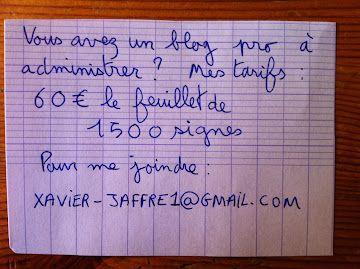 Vous avez un blog pro à
administrer ? Mes tarifs :
60€ le feuillet de
1500 signes
Pour me joindre :
XAVIER-JAFFRE1@GMAIL.COM